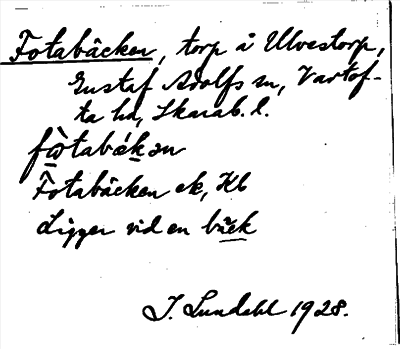 Fotabäcken, torp å Ulvestorp,
Gustaf Adolfs sn, Vartof-
ta hd, Skarab. l.
fò̲tabä́k̲ən
Fotabäcken ek, Kb
Ligger vid en bäck
J. Lundahl 1928.